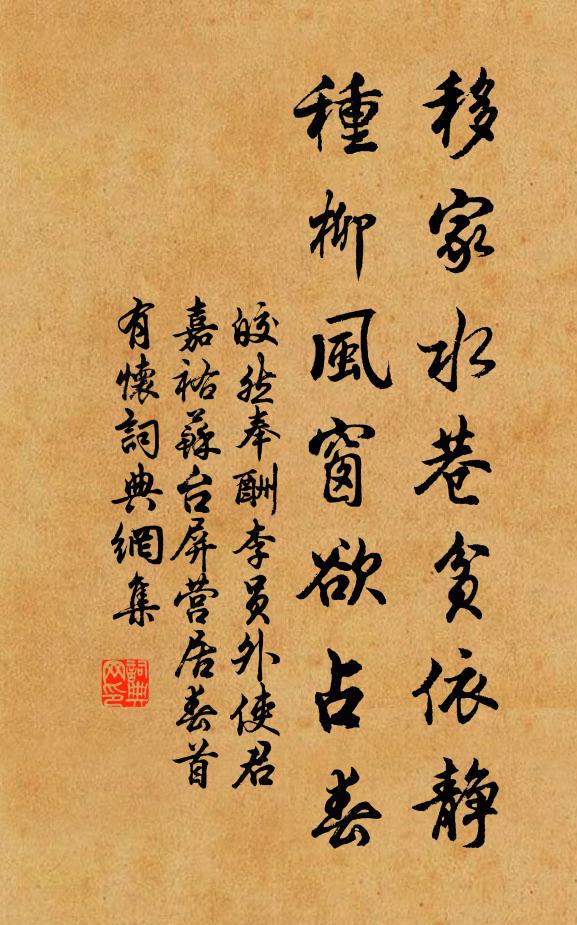 移家水巷貧依静
種柳風窗欲占春
皎然奉酬李员外使君
嘉祐蘇台屏营居春首
有懷詞典網集
詞典網印